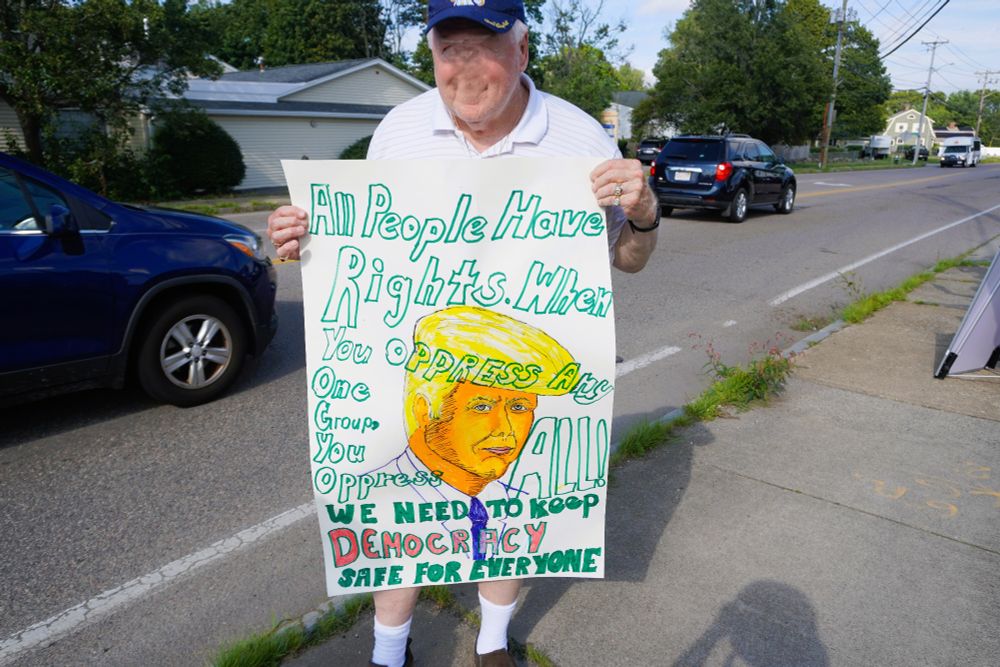 All People Have
Rights. When
You OPPRESS Any
One
Group,
You
Oppress ALL!
WE NEED TO KEEP
DEMOCRACY
SAFE FOR EVERYONE